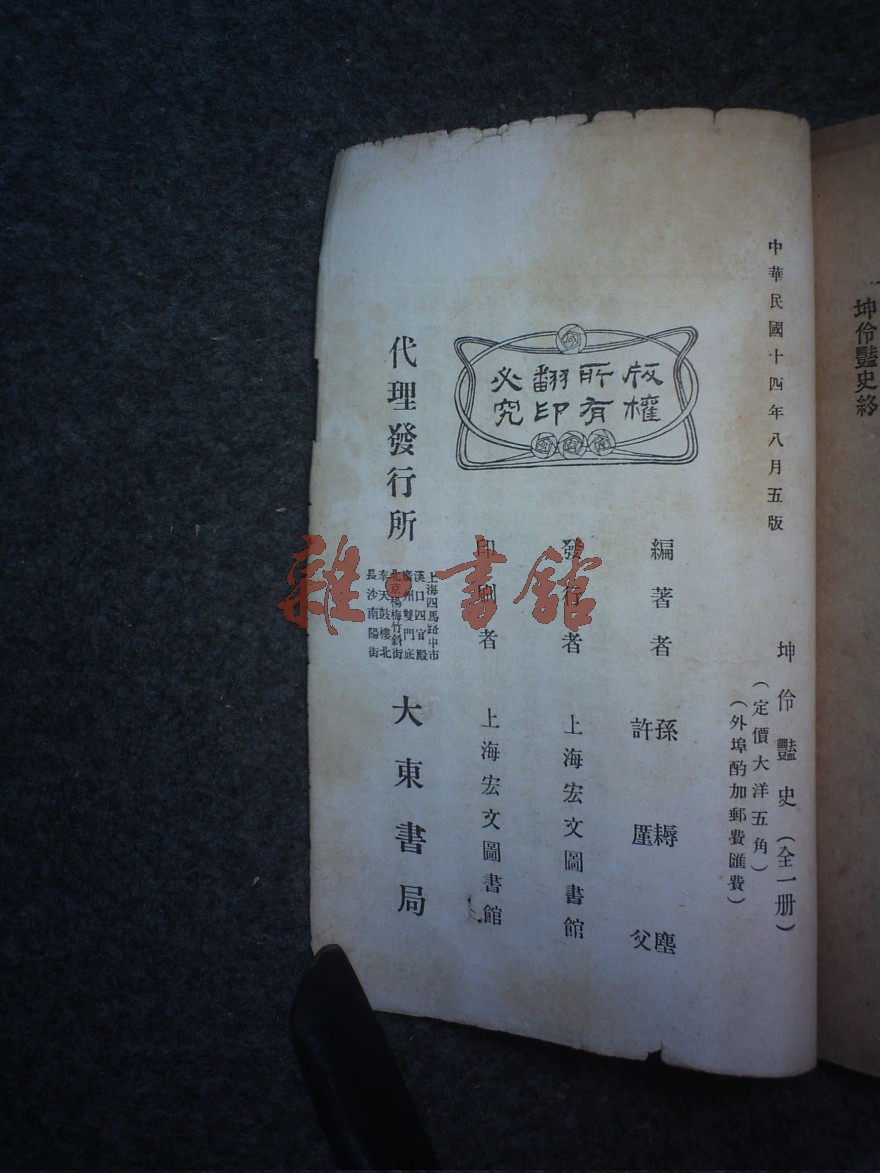 坤伶豔史終
中華民國十四年八月五版
坤伶豔史（全一册）
（定價大洋五角）
（外埠酌加郵費匯費）
版權
所有
翻印
必究
編著者
孫耨塵
許厪父
發行者 上海宏文圖書館
印刷者 上海宏文圖書館
代理發行所
上海四馬路中市
漢口四官殿
廣州雙門底
北京楊梅竹斜街
奉天鼓樓北
長沙南陽街
大東書局
雜·書館